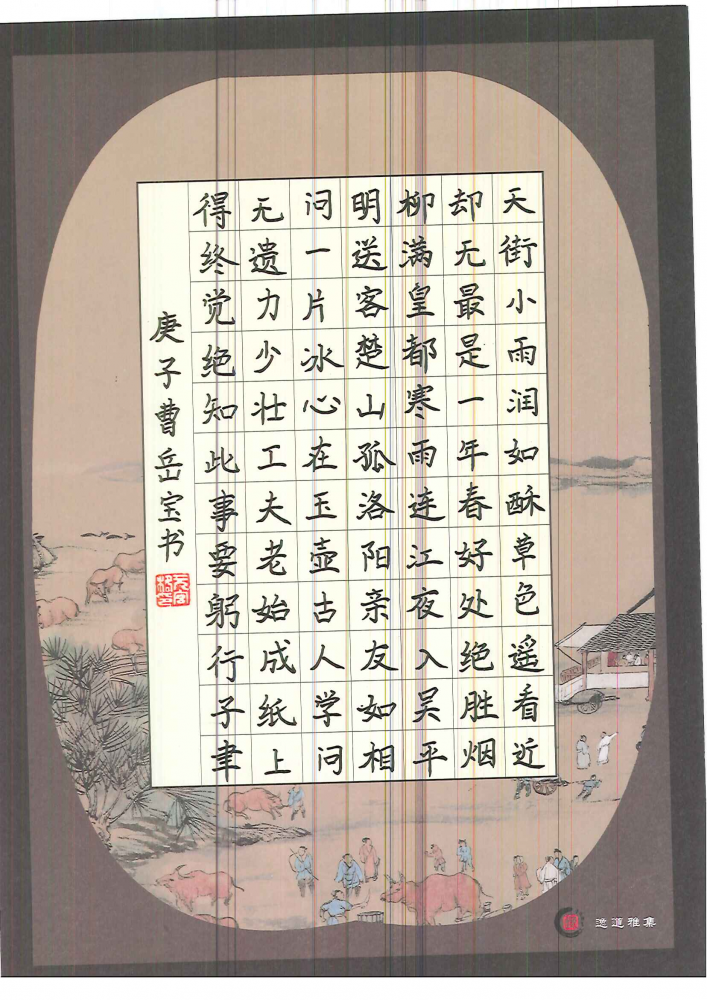 天街小雨润如酥草色遥看近
却无最是一年春好处绝胜烟
柳满皇都寒雨连江夜入吴平
明送客楚山孤洛阳亲友如相
问一片冰心在玉壶古人学问
无遗力少壮工夫老始成纸上
得终觉绝知此事要躬行子聿
庚子曹岳宝书
逸道雅集